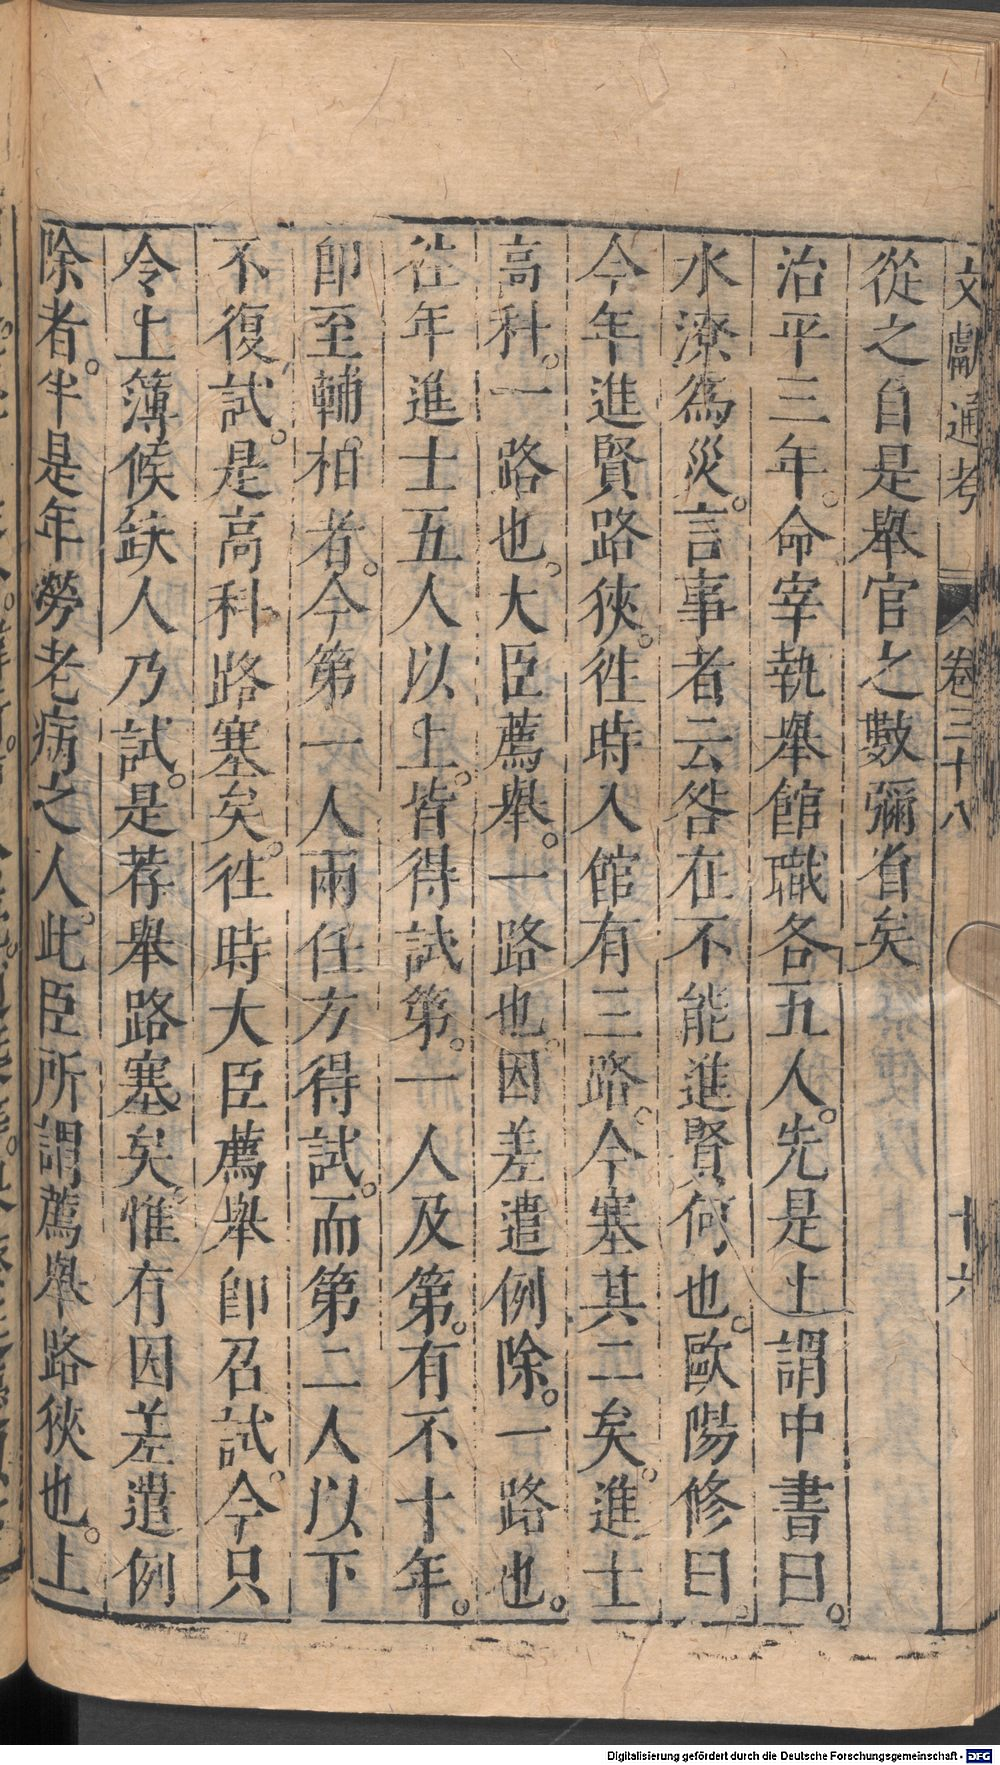 文獻通考 卷三十八 十六
從之自是舉官之數彌省矣
治平三年。命宰執舉館職各五人。先是上謂中書曰。
水潦為災。言事者云咎在不能進賢何也。歐陽修曰。
今年進賢路狹。往時入館有三路。今塞其二矣。進士
高科。一路也。大臣薦舉。一路也。因差遣例除。一路也。
往年進士五人以上。皆得試。第一人及第。有不十年。
即至輔相者。今第一人兩任方得試。而第二人以下
不復試。是高科路塞矣。往時大臣薦舉即召試。今只
令上簿候缺人乃試。是荐舉路塞矣。惟有因差遣例
除者。半是年勞老病之人。此臣所謂薦舉路狹也。上
Digitalisierung gefördert durch die Deutsche Forschungsgemeinschaft - DFG